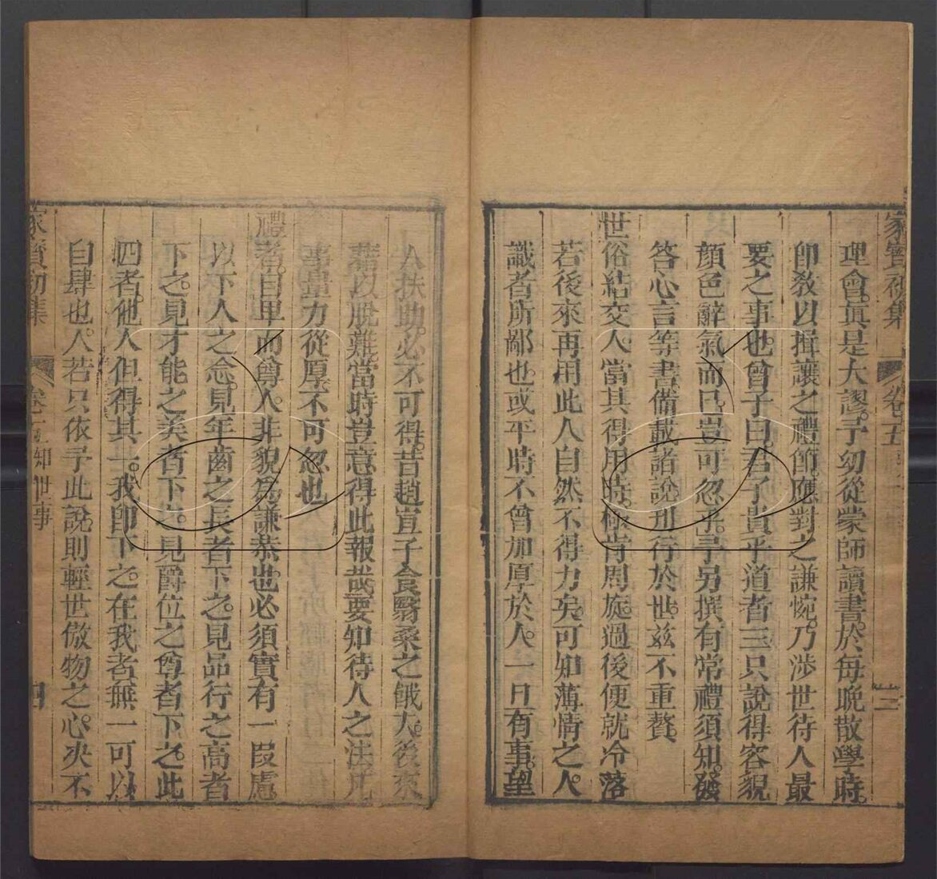 家寶初集 卷五
理會真是大謬予幼從蒙師讀書於每晚散學時
即教以揖讓之禮節應對之謙婉乃涉世待人最
要之事也曾子曰君子貴乎道者三只說得容貌
顏色辭氣而已豈可忽乎予另撰有常禮須知發
答心言等書備載諸說刊行於世茲不重贅
世俗結交人當其得用時極肯周旋過後便就冷落
若後來再用此人自然不得力矣可知薄情之人
識者所鄙也或平時不曾加厚於人一旦有事望
人扶助必不可得昔趙宣子食翳桑之餓人後來
藉以脫難當時豈意得此報哉要知待人之法凡
事量力從厚不可忽也
禮者自卑而尊人非貌為謙恭也必須實有一段處
以下人之念見年齒之長者下之見品行之高者
下之見才能之美者下之見爵位之尊者下之此
四者他人但得其一我即下之在我者無一可以
自肆也人若只依予此說則輕世傲物之心決不
家寶初集 卷五 知世事 四